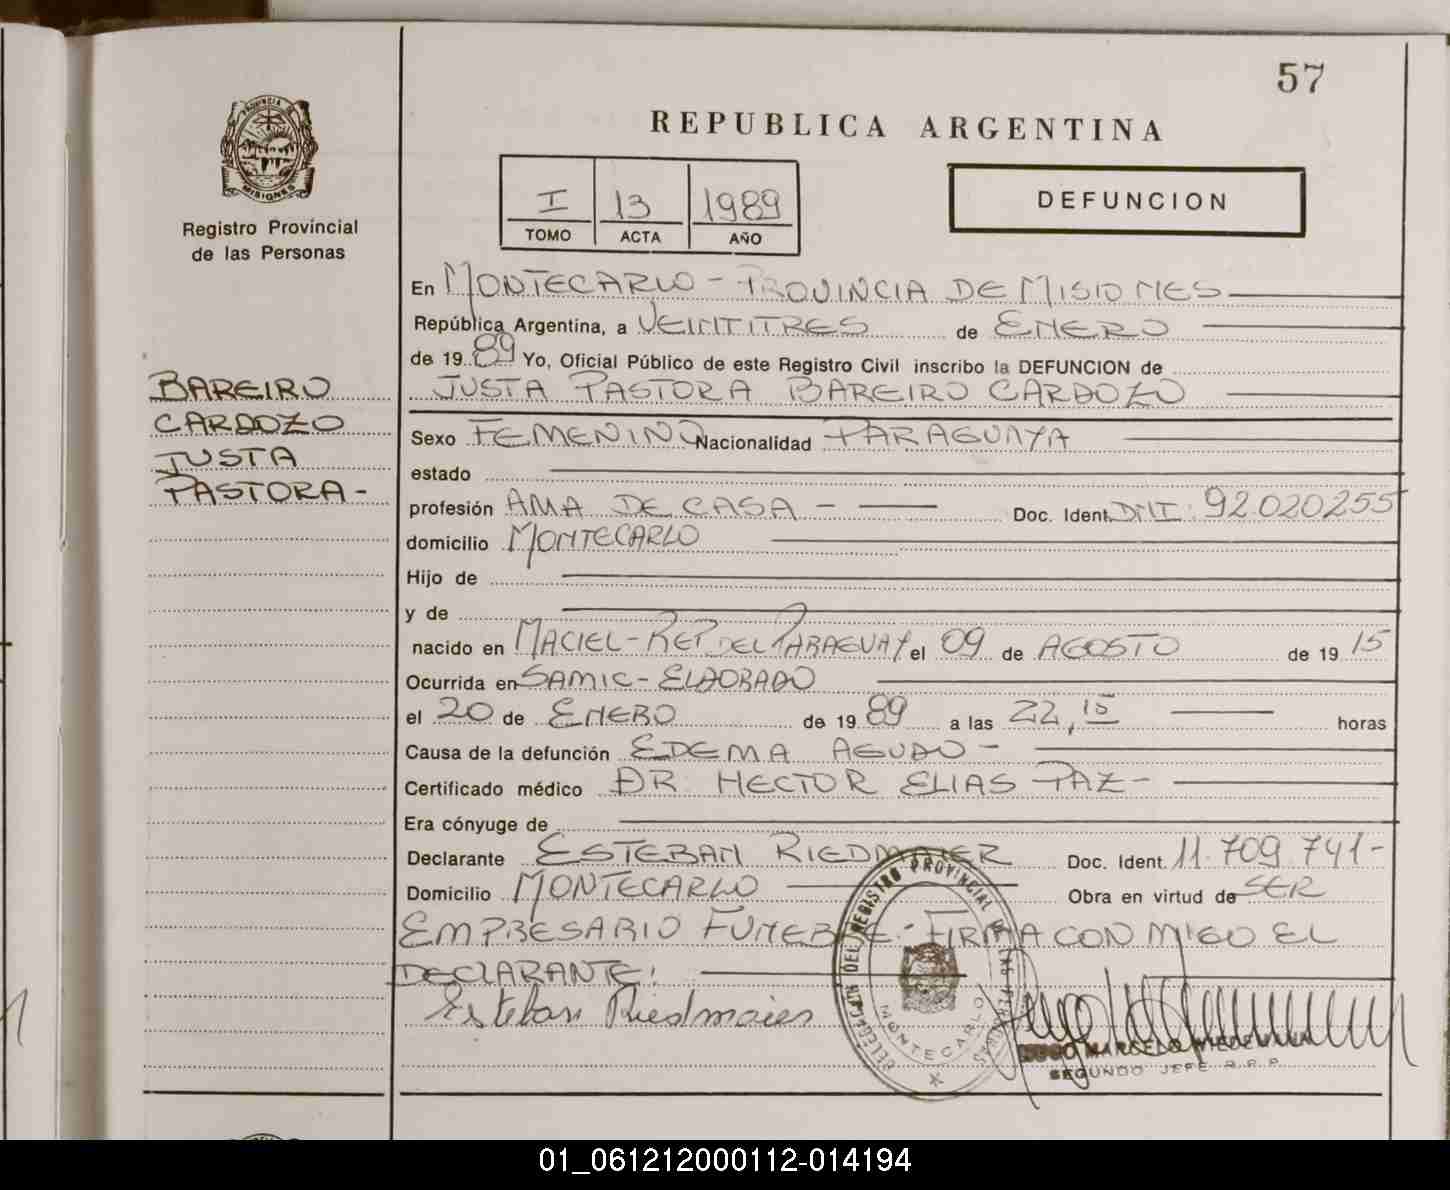 57
REPUBLICA ARGENTINA
PROVINCIA DE
MISIONES
Registro Provincial
de las Personas
I 13 1989
TOMO ACTA AÑO
DEFUNCION
BAREIRO
CARDOZO
JUSTA
PASTORA-
En MONTECARLO - PROVINCIA DE MISIONES
República Argentina, a VEINTITRES de ENERO
de 19 89 Yo, Oficial Público de este Registro Civil inscribo la DEFUNCION de
JUSTA PASTORA BAREIRO CARDOZO
Sexo FEMENINO Nacionalidad PARAGUAYA
estado
profesión AMA DE CASA - Doc. Ident. DNI: 92.020255
domicilio MONTECARLO
Hijo de
y de
nacido en MACIEL-REP DEL PARAGUAY el 09 de AGOSTO de 19 15
Ocurrida en SAMIC-ELDORADO
el 20 de ENERO de 19 89 a las 22,15 horas
Causa de la defunción EDEMA AGUDO -
Certificado médico DR. HECTOR ELIAS PAZ-
Era cónyuge de
Declarante ESTEBAN RIEDMAIER Doc. Ident. 11.709.741-
Domicilio MONTECARLO Obra en virtud de SER
EMPRESARIO FUNEBRE.- FIRMA CON MIGO EL
DECLARANTE:
Esteban Riedmaier
DELEGACION DEL REGISTRO PROVINCIAL DE LAS PERSONAS
MONTECARLO
HUGO MARCELO
SEGUNDO JEFE R.P.P.
01_061212000112-014194